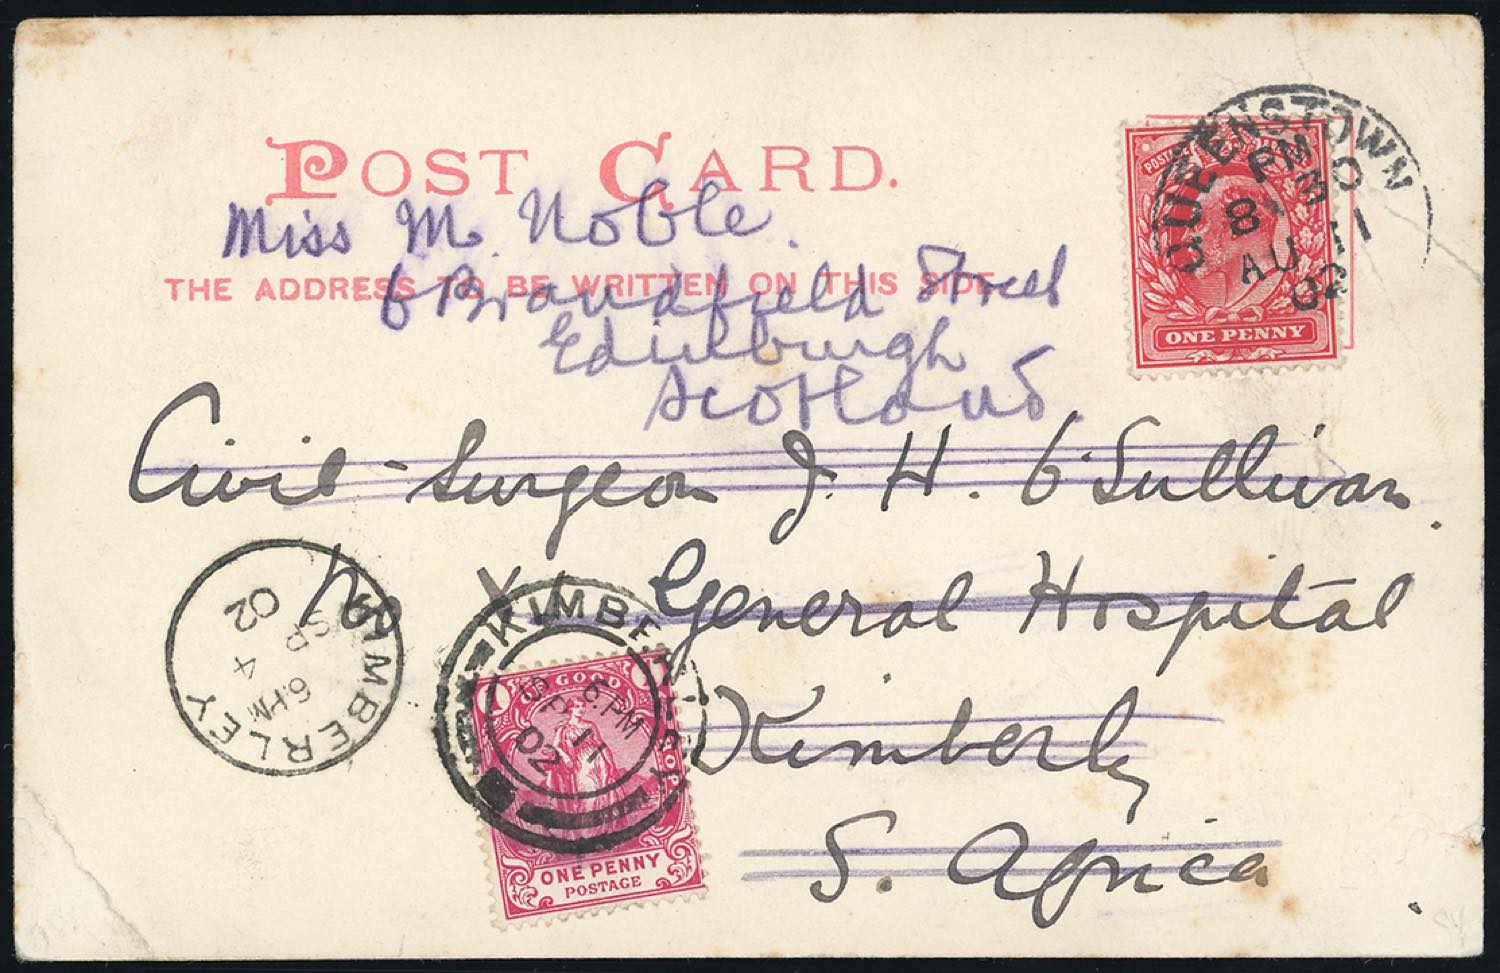 POST CARD.
Miss M. Noble.
THE ADDRESS TO BE WRITTEN ON THIS SIDE.
6 Brandfield Street
Edinburgh
Scotland.
Civil-Surgeon J. H. O'Sullivan.
No X General Hospital
Kimberly
S. Africa.
QUEENSTOWN
PM
8
AU 11
02
POSTAGE
ONE PENNY
KIMBERLEY
6 PM
SP 4
02
KIMBERLEY
6. PM
SP 11
02
GOOD HOPE
ONE PENNY
POSTAGE